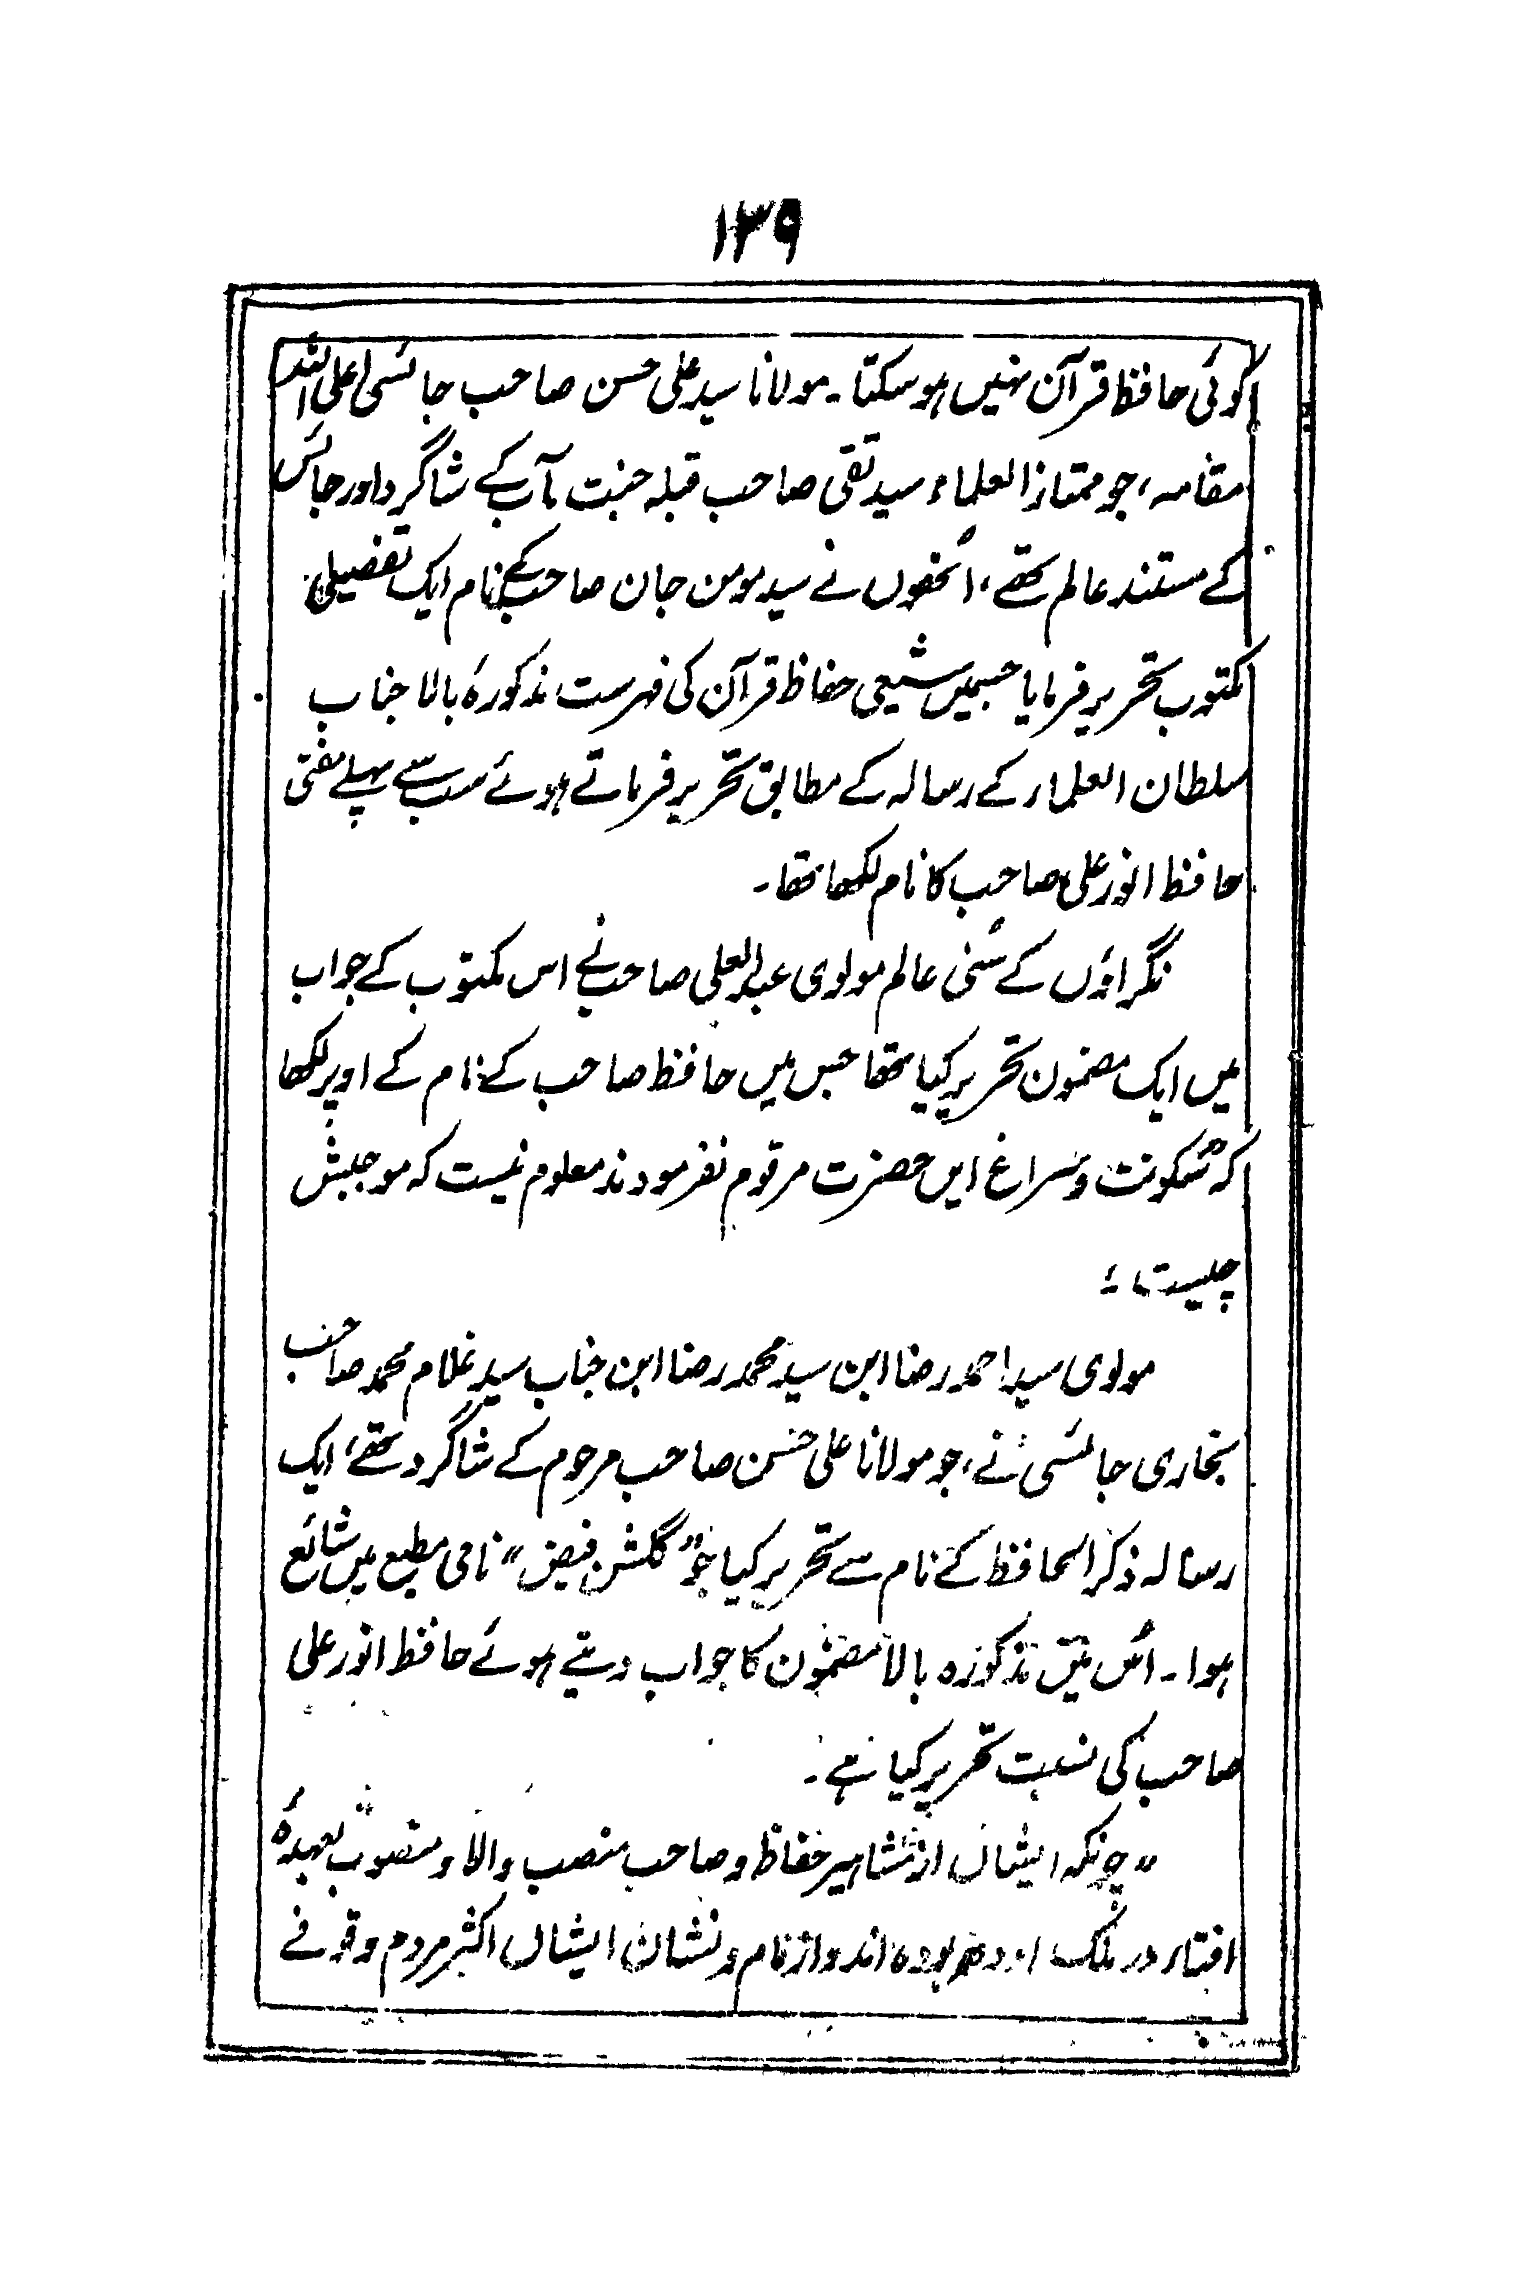 ۱۳۹
کوئی حافظ قرآن نہیں ہو سکتا۔ مولانا سید علی حسن صاحب جائسی اعلی اللہ
مقامہ، جو ممتاز العلماء سید تقی صاحب قبلہ جنت مآب کے شاگرد اور جائس
کے مستند عالم تھے، انھوں نے سید مومن جان صاحب کے نام ایک تفصیلی
مکتوب تحریر فرمایا جسمیں شیعی حفاظ قرآن کی فہرست مذکورۂ بالا جناب
سلطان العلماء کے رسالہ کے مطابق تحریر فرماتے ہوئے سب سے پہلے مفتی
حافظ انور علی صاحب کا نام لکھا تھا۔
نگراؤں کے سُنی عالم مولوی عبد العلی صاحب نے اس مکتوب کے جواب
میں ایک مضمون تحریر کیا تھا جس میں حافظ صاحب کے نام کے اوپر لکھا
کہ "سکونت و سراغ ایں حضرت مرقوم نفرمودند معلوم نیست کہ موجبش
چیست ؟
مولوی سید احمد رضا ابن سید محمد رضا ابن جناب سید غلام محمد صاحب
بخاری جائسی نے، جو مولانا علی حسن صاحب مرحوم کے شاگرد تھے، ایک
رسالہ ذکر الحافظ کے نام سے تحریر کیا جو "گلشن فیض" نامی مطبع میں شائع
ہوا۔ اُس میں مذکورہ بالا مضمون کا جواب دیتے ہوئے حافظ انور علی
صاحب کی نسبت تحریر کیا ہے۔
"چونکہ ایشاں از مشاہیر حفاظ و صاحب منصب والا و منصوب بعہدۂ
افتاء در ملک اودھ بودہ اند و از نام و نشان ایشاں اکثر مردم وقوفے